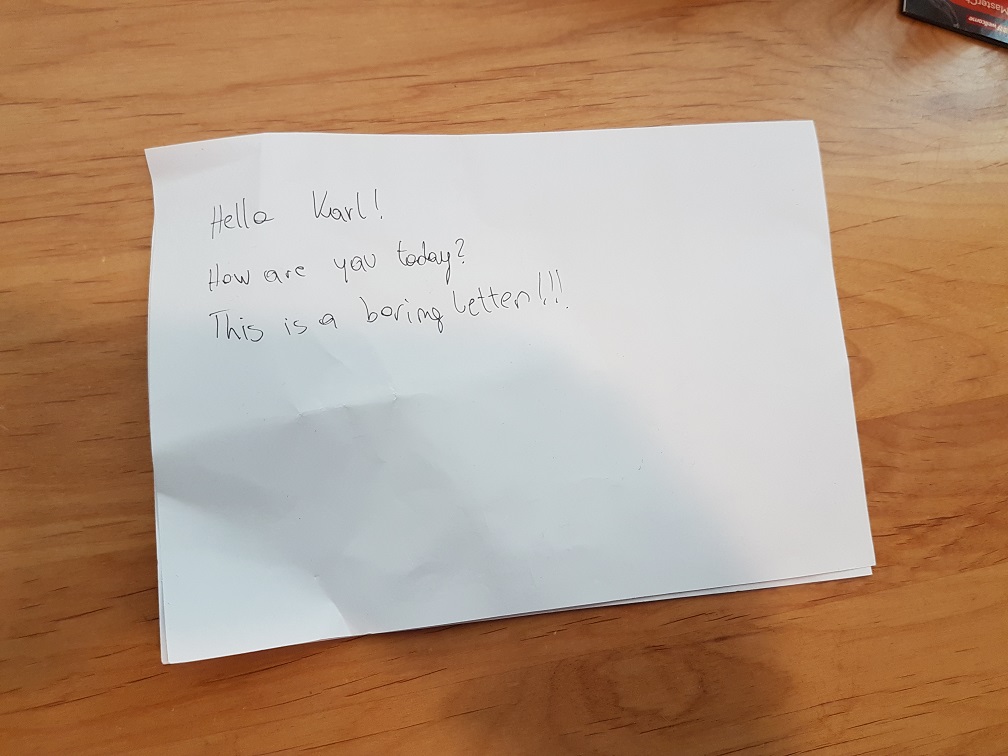 Hello Karl!
How are you today?
This is a boring letter!!!
welcome